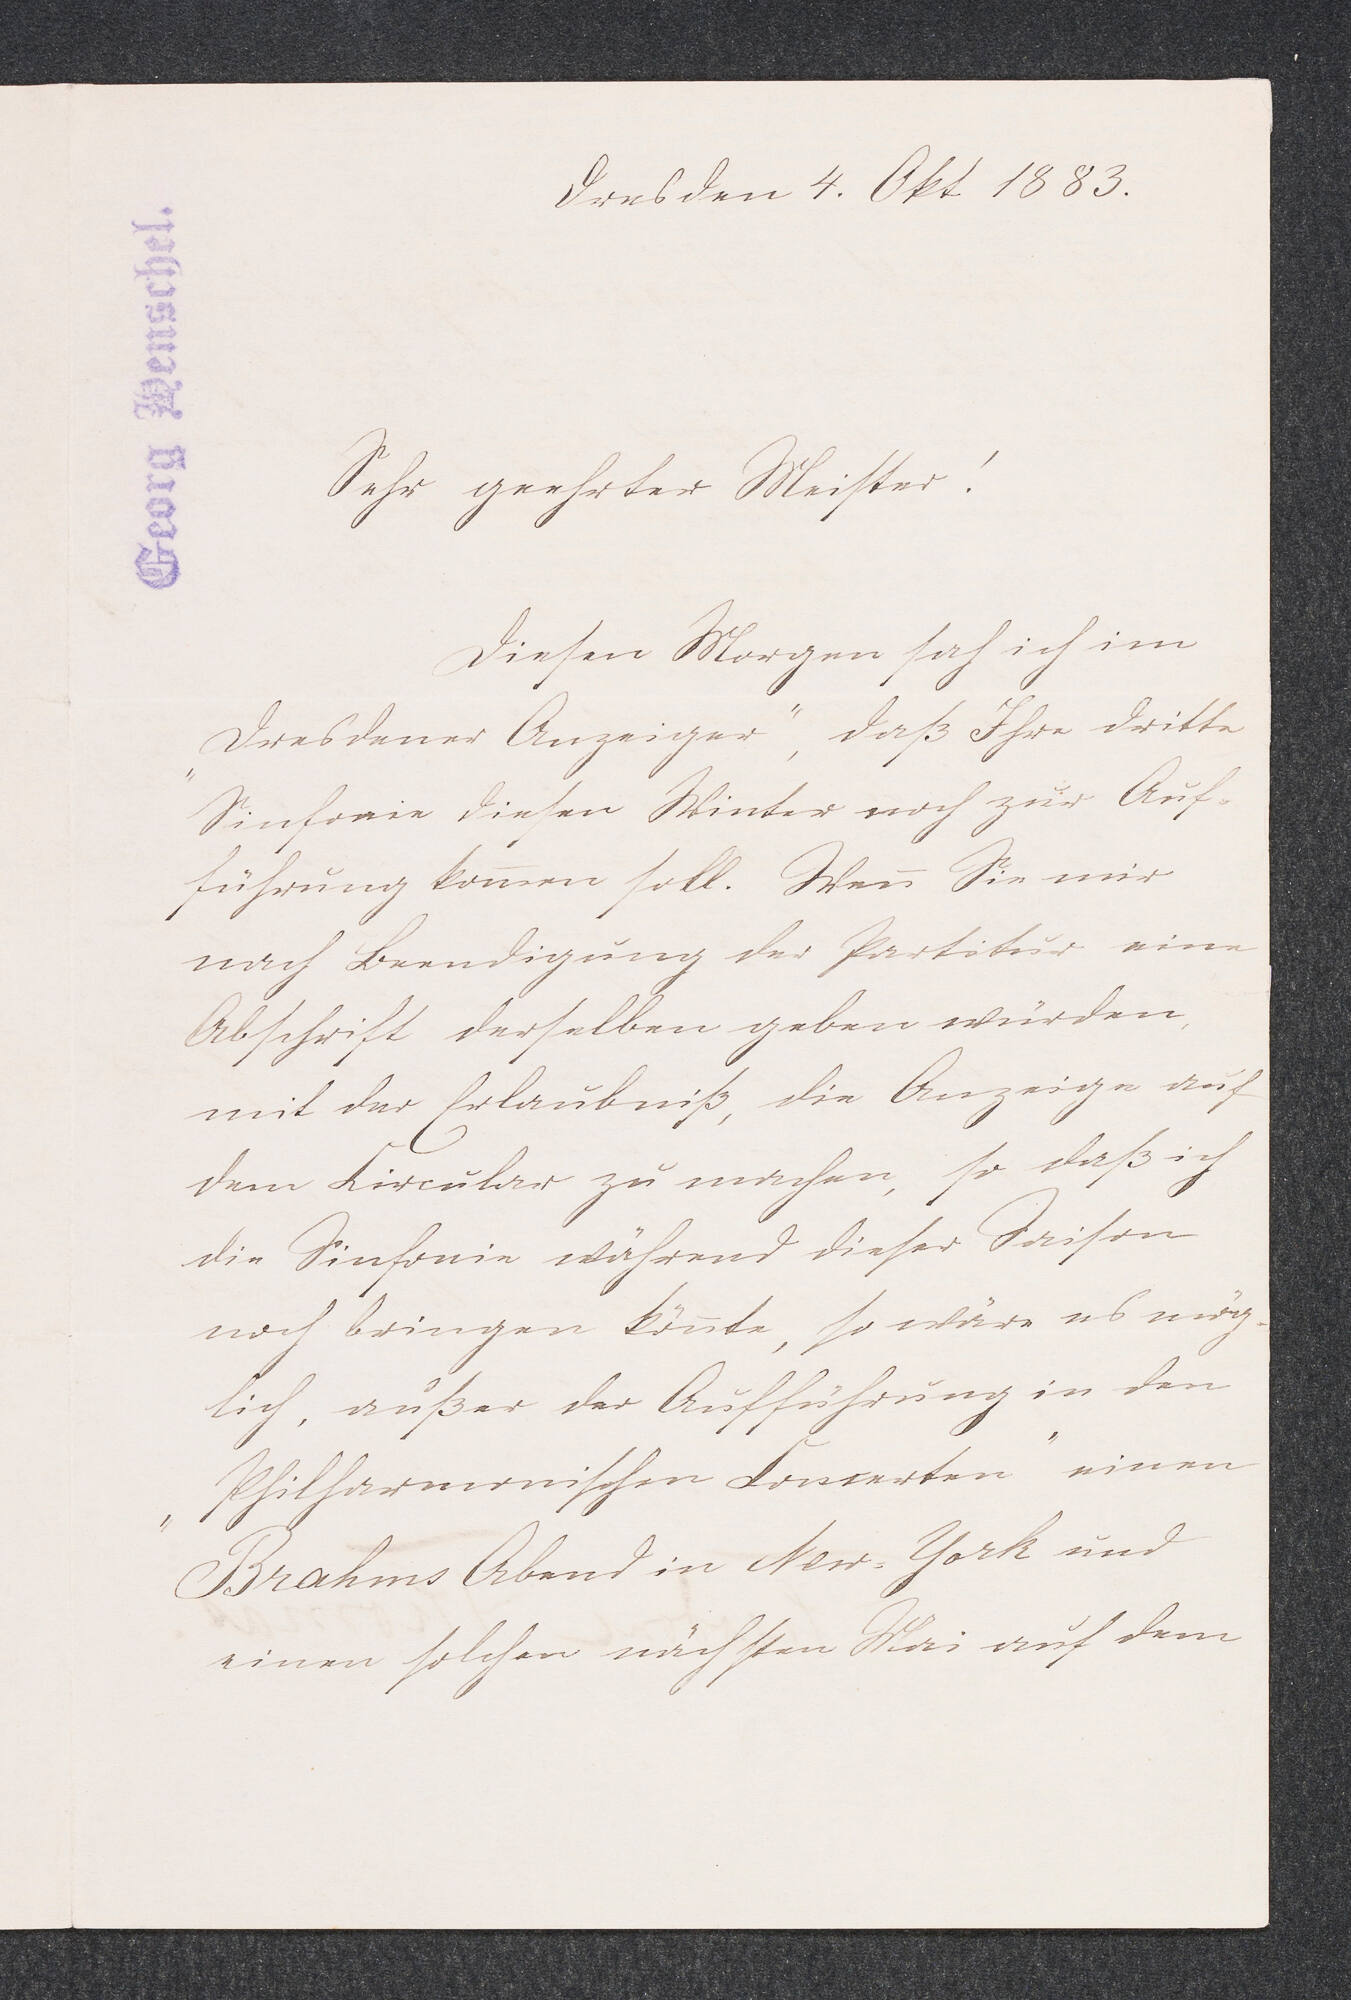 Dresden 4. Okt 1883.
Georg Henschel.
Sehr geehrter Meister!
Diesen Morgen sah ich im
„Dresdener Anzeiger“, daß Ihre dritte
Sinfonie diesen Winter noch zur Auf-
führung kom̅en soll. Wen̅ Sie mir
nach Beendigung der Partitur eine
Abschrift derselben geben würden,
mit der Erlaubniß, die Anzeige auf
dem Circular zu machen, so daß ich
die Sinfonie während dieser Saison
noch bringen kön̅te, so wäre es mög-
lich, außer der Aufführung in den
„Philharmonischen Concerten“ einen
Brahms Abend in New-York und
einen solchen nächsten Mai auf dem